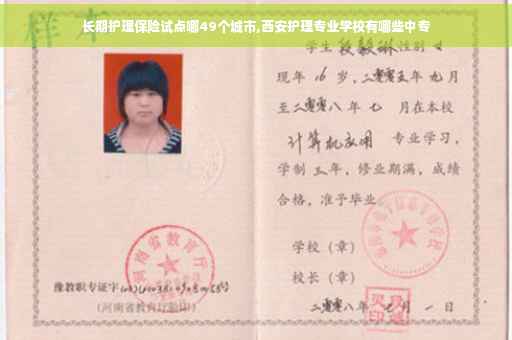 长期护理保险试点哪49个城市,西安护理专业学校有哪些中专
样本
学生 段毅琳 性别 女
现年 16 岁，二零零五年 九 月
至二零零八年 七 月在本校
计算机应用 专业学习，
学制 三 年，修业期满，成绩
合格，准予毕业
学校（章）
校长（章）
二零零八年 七 月 一 日
河南省教育厅
豫教职专证字
(河南省教育厅验印)